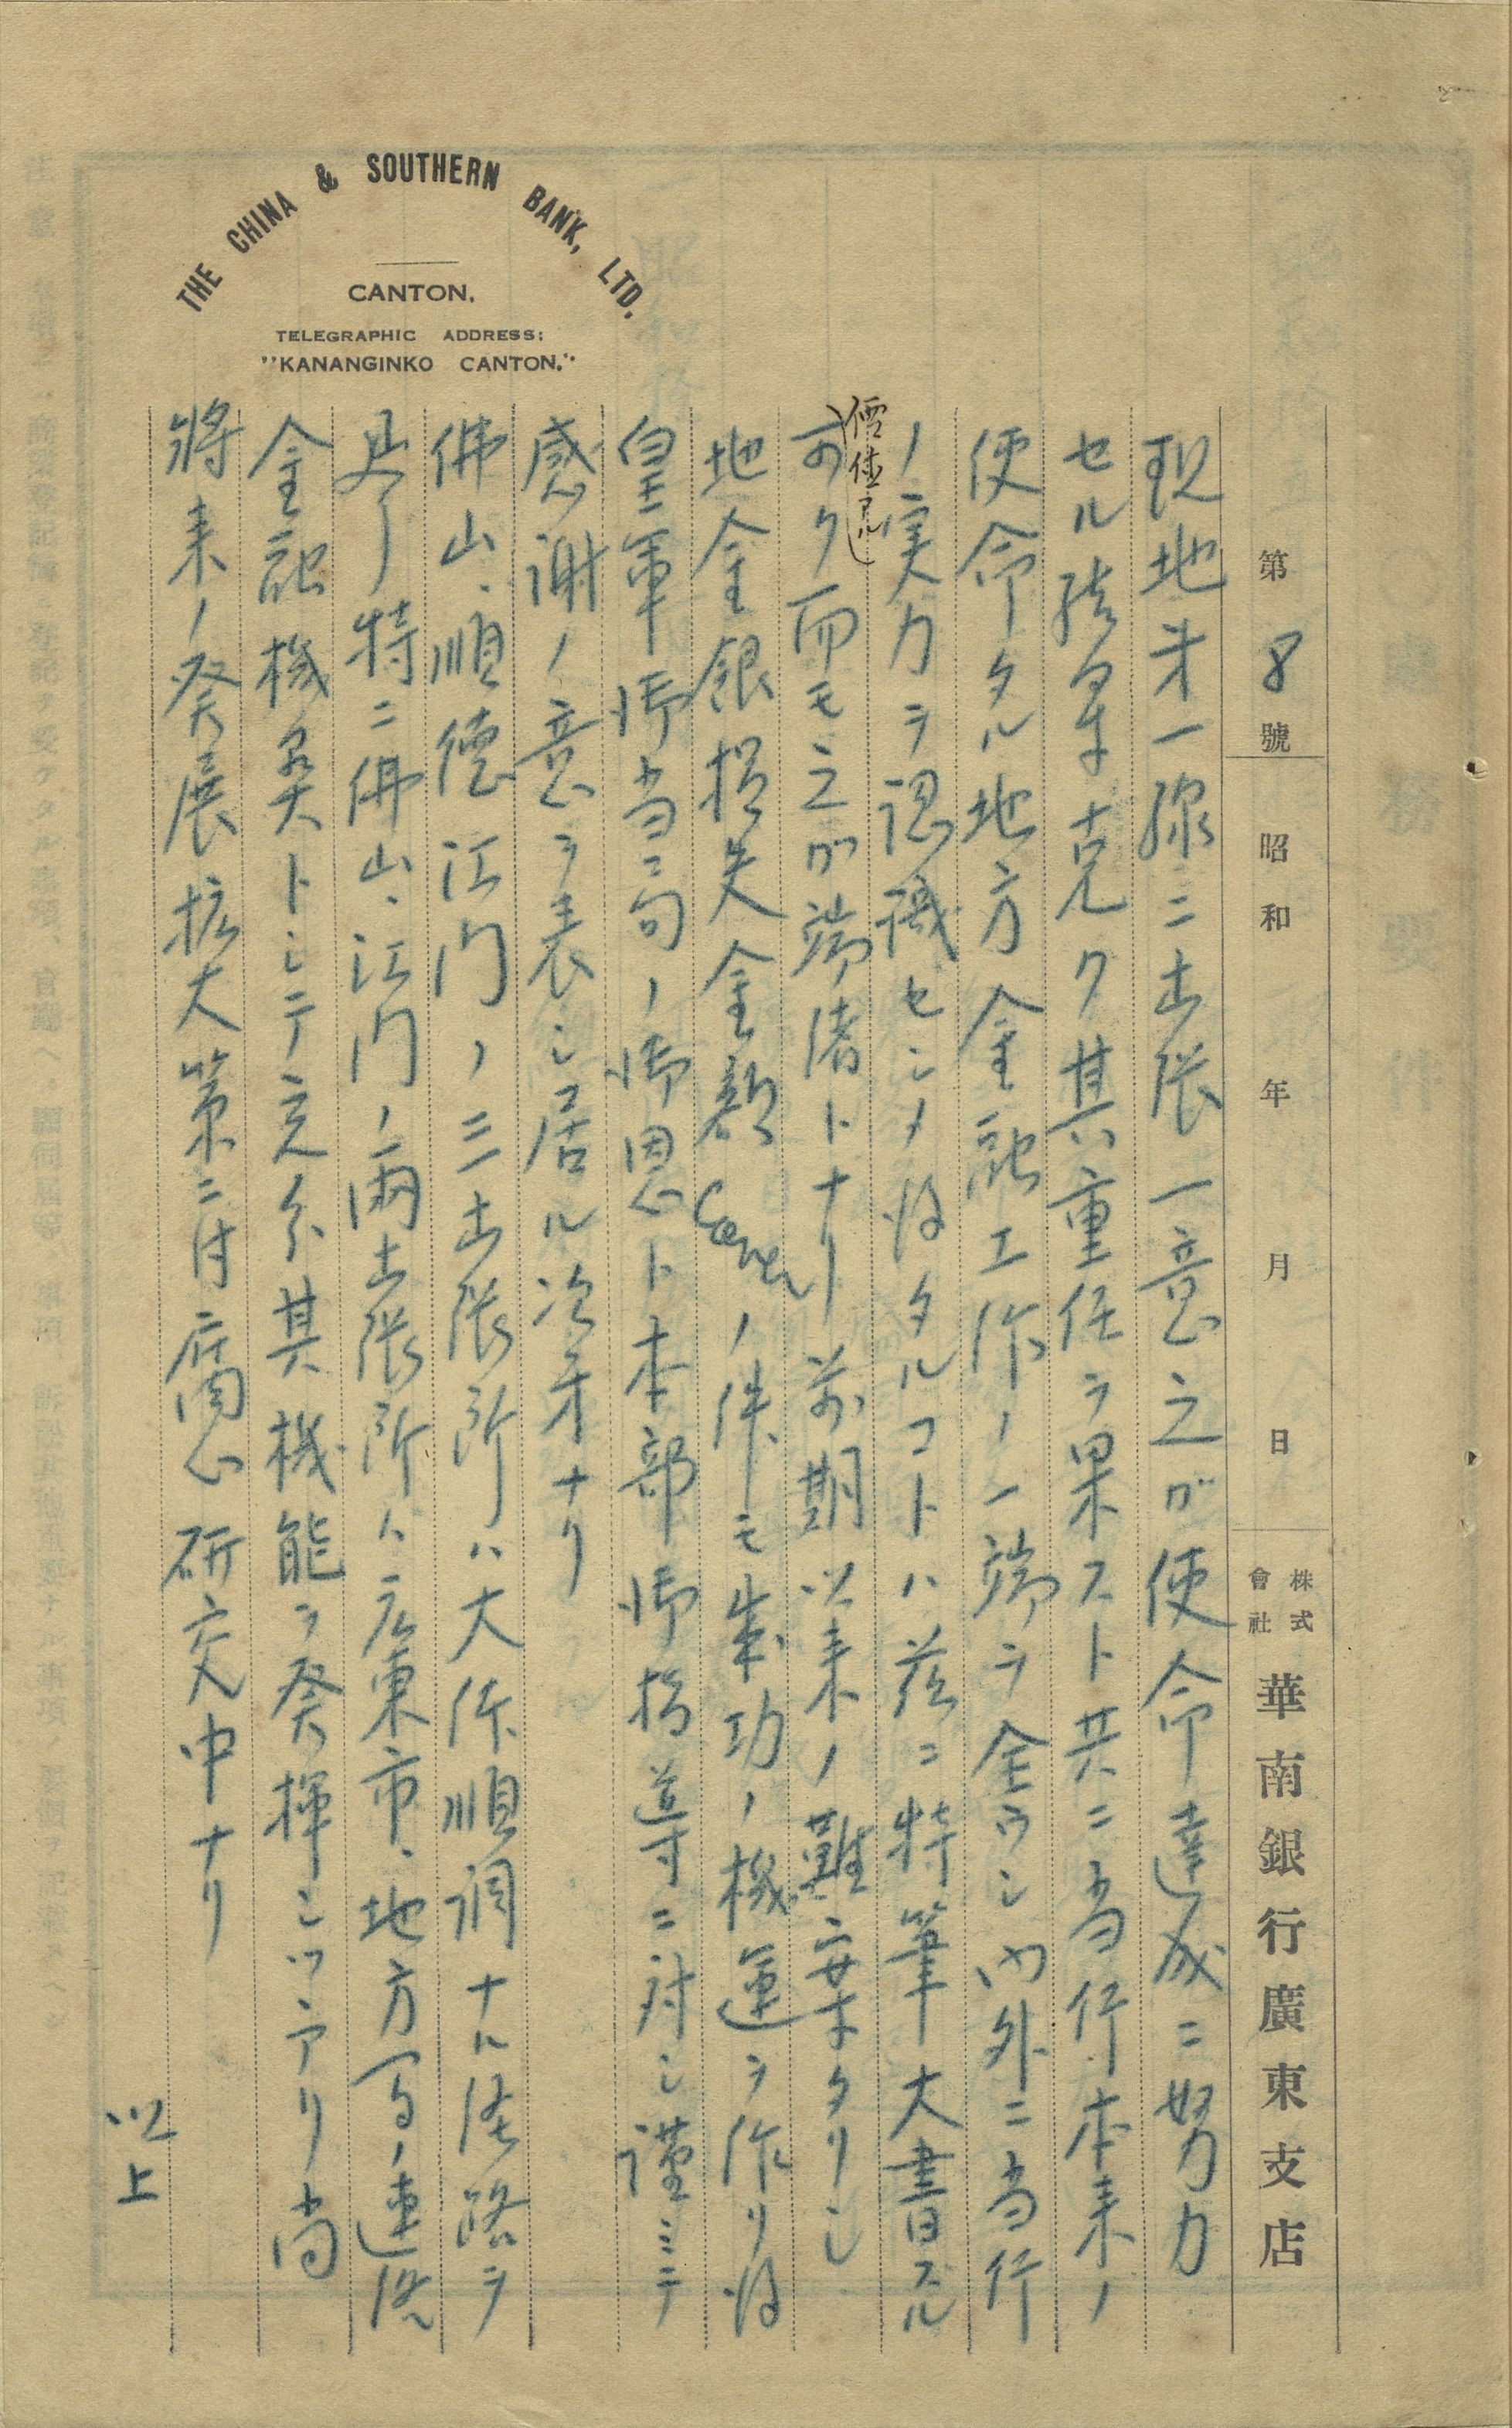 第 8 號 昭和 年 月 日 株式會社 華南銀行廣東支店
現地才一線ニ出張一意之ガ使命達成ニ努力
セル結果克ク其重任ヲ果スト共ニ当行本来ノ
使命タル地方金融工作ノ一端ヲ全ウシ内外ニ当行
ノ実力ヲ認識セシメ得タルコトハ茲ニ特筆大書スル
價値アル
而モ之ガ端緒トナリ前期以来ノ難案タリシ
地金銀損失金額 Cover ノ件モ成功ノ機運ヲ作リ得
皇軍御当局ノ御恩ト本部御指導ニ対シ謹ミテ
感謝ノ意ヲ表シ居ル次第ナリ
佛山、順德江門ノ三出張所ハ大体順調ナル経路ヲ
特ニ佛山、江門ノ両出張所ハ広東市、地方間ノ連絡
金融機関トシテ充分其機能ヲ発揮シツツアリ尚
将来ノ発展拡大策ニ付腐心研究中ナリ
以上
THE CHINA & SOUTHERN BANK, LTD.
CANTON.
TELEGRAPHIC ADDRESS:
"KANANGINKO CANTON."